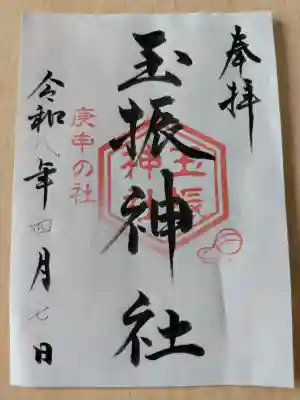 奉拝
玉振神社
玉振
神社
庚申の社
令和八年四月七日